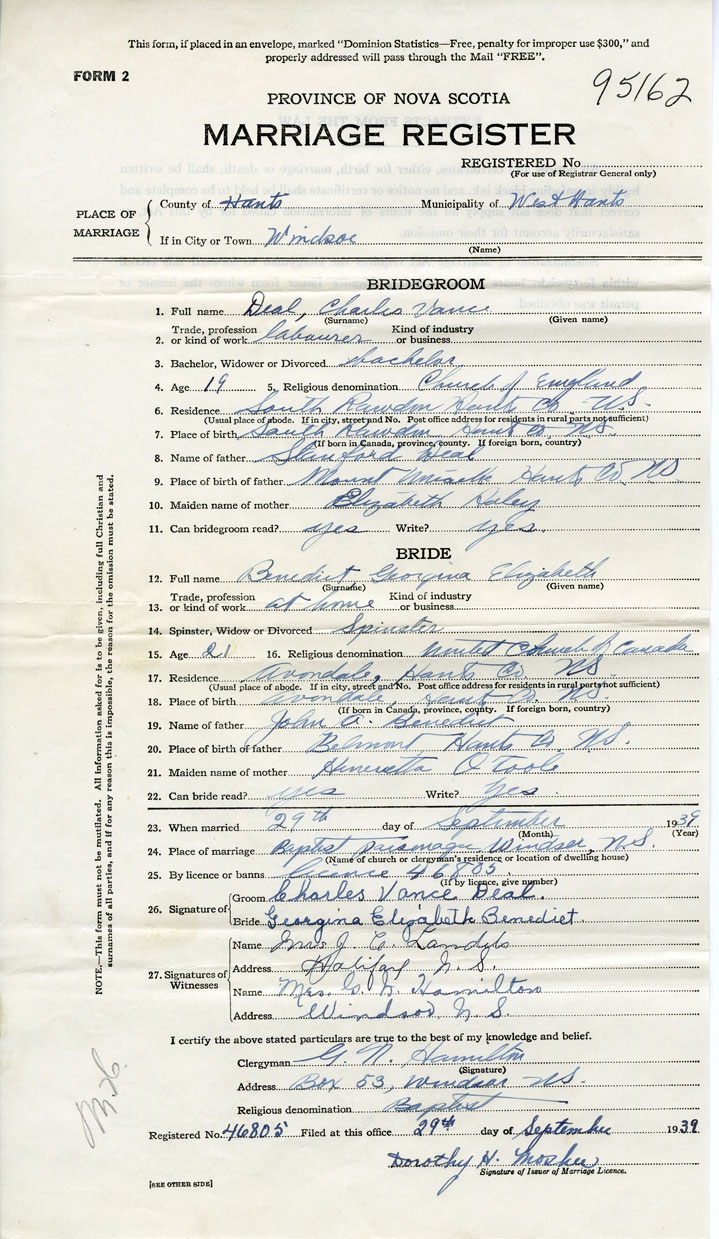 This form, if placed in an envelope, marked "Dominion Statistics—Free, penalty for improper use $300," and
properly addressed will pass through the Mail "FREE".
FORM 2
95162
PROVINCE OF NOVA SCOTIA
MARRIAGE REGISTER
REGISTERED No.
(For use of Registrar General only)
PLACE OF MARRIAGE
County of Hants Municipality of West Hants
If in City or Town Windsor
(Name)
BRIDEGROOM
1. Full name Deal, Charles Vance
(Surname) (Given name)
Trade, profession Kind of industry
2. or kind of work labourer or business
3. Bachelor, Widower or Divorced bachelor
4. Age 19 5. Religious denomination Church of England
6. Residence South Rawdon Hants Co. N.S.
(Usual place of abode. If in city, street and No. Post office address for residents in rural parts not sufficient)
7. Place of birth South Rawdon Hants Co. N.S.
(If born in Canada, province, county. If foreign born, country)
8. Name of father Stanford Deal
9. Place of birth of father Mount Uniacke Hants Co. N.S.
10. Maiden name of mother Elizabeth Haley
11. Can bridegroom read? yes Write? yes.
BRIDE
12. Full name Benedict, Georgina Elizabeth
(Surname) (Given name)
Trade, profession Kind of industry
13. or kind of work at home or business
14. Spinster, Widow or Divorced Spinster
15. Age 21 16. Religious denomination United Church of Canada
17. Residence Avondale, Hants Co. N.S.
(Usual place of abode. If in city, street and No. Post office address for residents in rural parts not sufficient)
18. Place of birth Avondale, Hants Co. N.S.
(If born in Canada, province, county. If foreign born, country)
19. Name of father John A. Benedict
20. Place of birth of father Belmont, Hants Co. N.S.
21. Maiden name of mother Henrietta O'Toole
22. Can bride read? yes Write? yes
23. When married 29th day of September 1939
(Month) (Year)
24. Place of marriage Baptist Parsonage, Windsor, N.S.
(Name of church or clergyman's residence or location of dwelling house)
25. By licence or banns licence 46805
(If by licence, give number)
26. Signature of
Groom Charles Vance Deal.
Bride Georgina Elizabeth Benedict.
27. Signatures of Witnesses
Name Mrs. J. C.
Address Halifax N.S.
Name Mrs. G. N. Hamilton
Address Windsor N.S.
I certify the above stated particulars are true to the best of my knowledge and belief.
Clergyman G. N. Hamilton
(Signature)
Address Box 53, Windsor N.S.
Religious denomination Baptist
Registered No. 46805 Filed at this office 29th day of September 1939
Dorothy H. Mosher
Signature of Issuer of Marriage Licence.
[SEE OTHER SIDE]
NOTE.—This form must not be mutilated. All information asked for is to be given, including full Christian and
surnames of all parties, and if for any reason this is impossible, the reason for the omission must be stated.